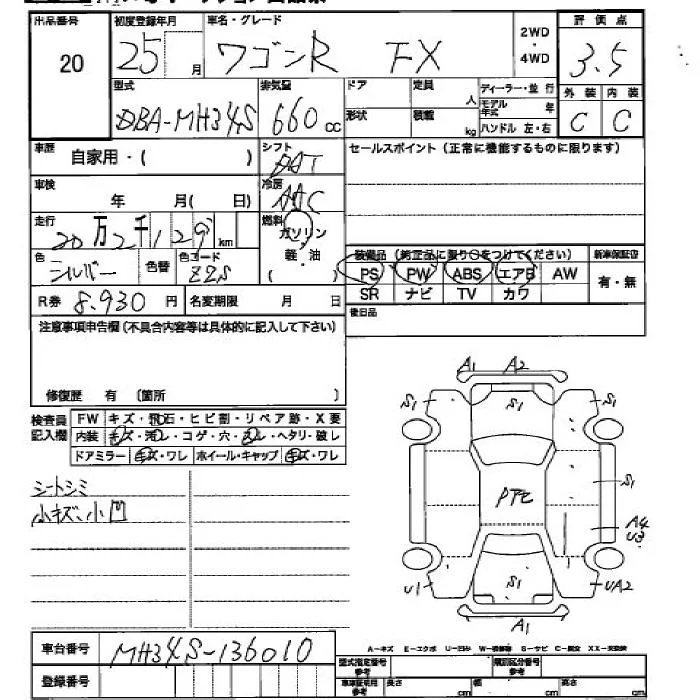 出品番号 初度登録年月 車名・グレード 2WD・4WD 評価点
20 25 月 ワゴンR FX 3.5
型式 排気量 ドア 定員 人 ディーラー・並行 外装 内装
DBA-MH34S 660 cc 形状 積載 kg モデル年式 年 C C
ハンドル 左・右
車歴 自家用・( ) シフト セールスポイント(正常に機能するものに限ります)
車検 年 月( 日) 冷房 AAC
走行 20万2千129 km 燃料 ガソリン
色 シルバー 色替 色コード Z2S 軽・油 ( )
装備品(純正品に限り○をつけてください) 新車保証書
PS PW ABS エアB AW 有・無
SR ナビ TV カワ
R券 8.930 円 名変期限 月 日
後日品
注意事項申告欄(不具合内容等は具体的に記入して下さい)
修復歴 有 〔箇所 〕
検査員記入欄 FW キズ・飛石・ヒビ割・リペア跡・X要
内装 キズ・汚レ・コゲ・穴・スレ・ヘタリ・破レ
ドアミラー キズ・ワレ ホイール・キャップ キズ・ワレ
シートシミ
小キズ、小凹
A1 A2
S1 S1 S1
S1
A4
U3
U1 S1 UA2
A1
車台番号 MH34S-136010
登録番号
A-キズ E-エクボ U-凹み W-補修跡 S-サビ C-腐食 XX-交換済
型式指定番号 参考 類別区分番号 参考
車車証明用 参考 長さ cm 幅 cm 高さ cm